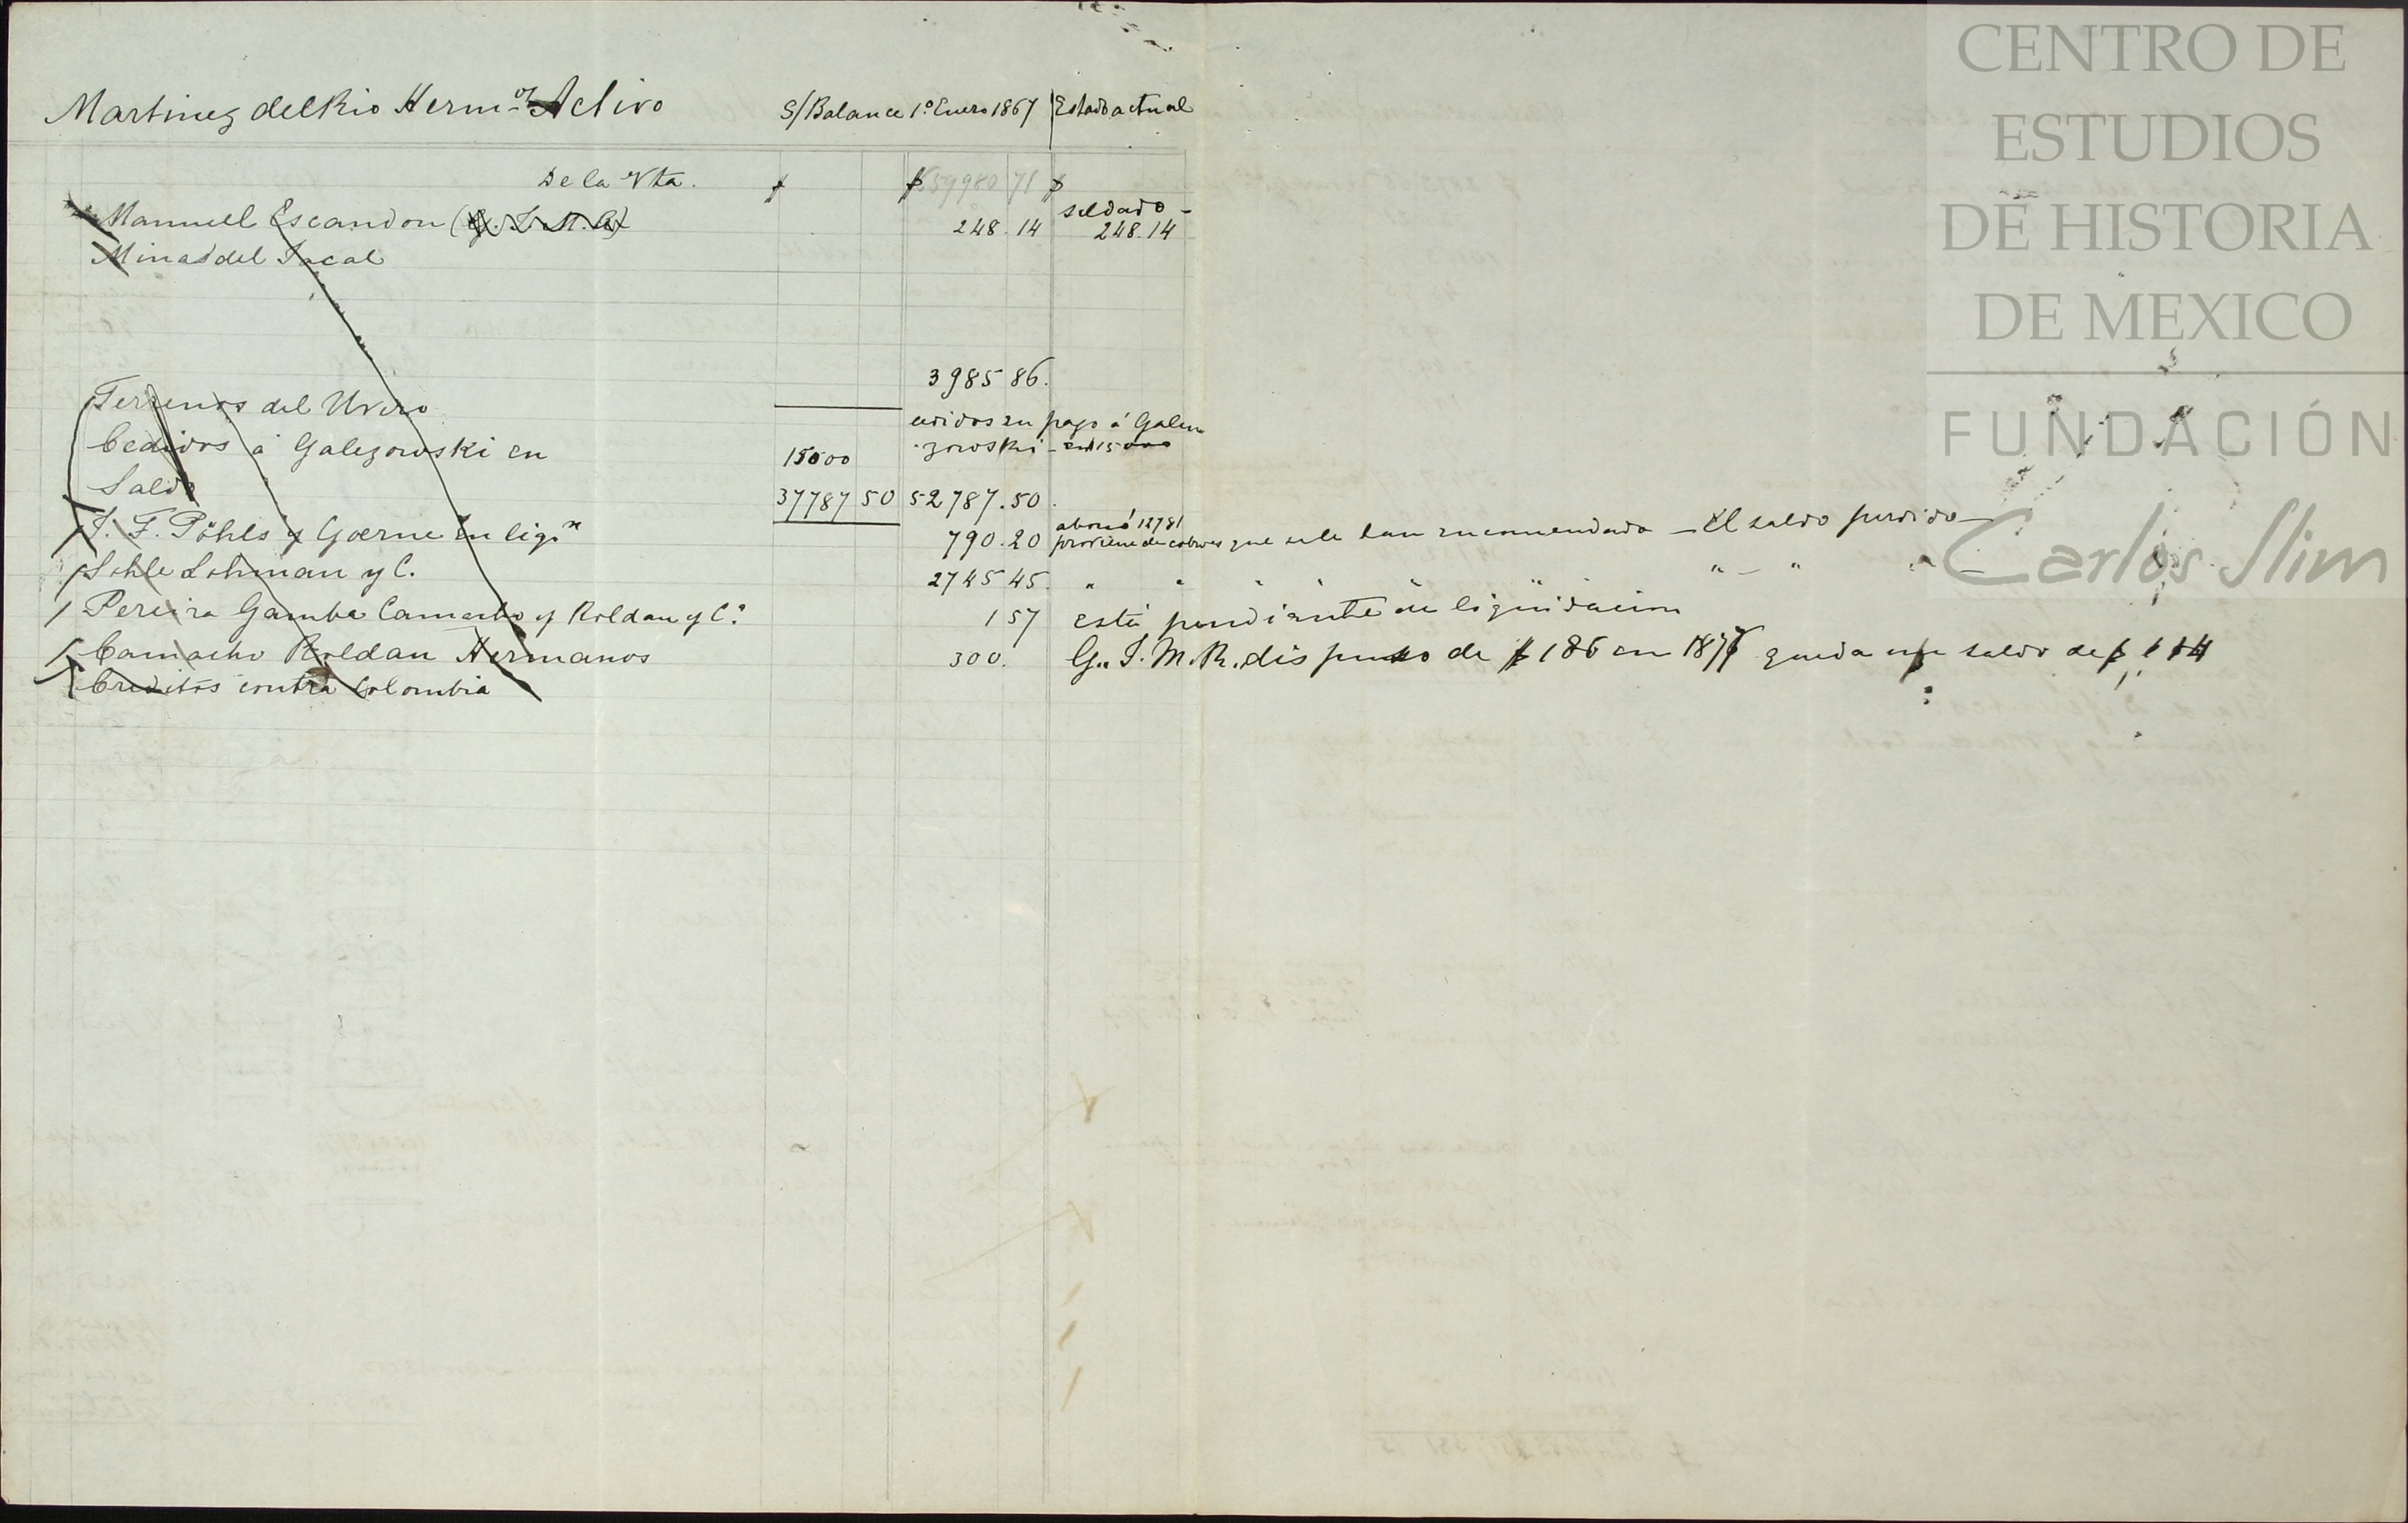 Martinez del Rio Herm.os Activo S/Balance 1.º Enero 1867 Estado actual
De la Vta. $ $ 59980 71 $
Manuell Escandon (G. J. M. R) 248.14 saldado - 248.14
Minas del Jacal
3985 86.
Terrenos del Uvero
Cedidos á Galezowski en 15000 cedidos en pago á Galezowski - en 15000
Saldo 37787 50 52787.50
J. F. Pöhls y Goerne en liq.n 790.20 abonó 12781 proviene de cobros que se le han encomendado - El saldo perdido -
Sohle Lohman y C. 2745 45. " " " " " " - "
Pereira Gamba Camacho y Roldan y C.ª 157 está pendiente de liquidacion
Camacho Roldan Hermanos 300. G. J. M. R. dispuso de $ 186 en 1877 queda un saldo de $ 114
Creditos contra Colombia
CENTRO DE
ESTUDIOS
DE HISTORIA
DE MEXICO
FUNDACIÓN
Carlos Slim